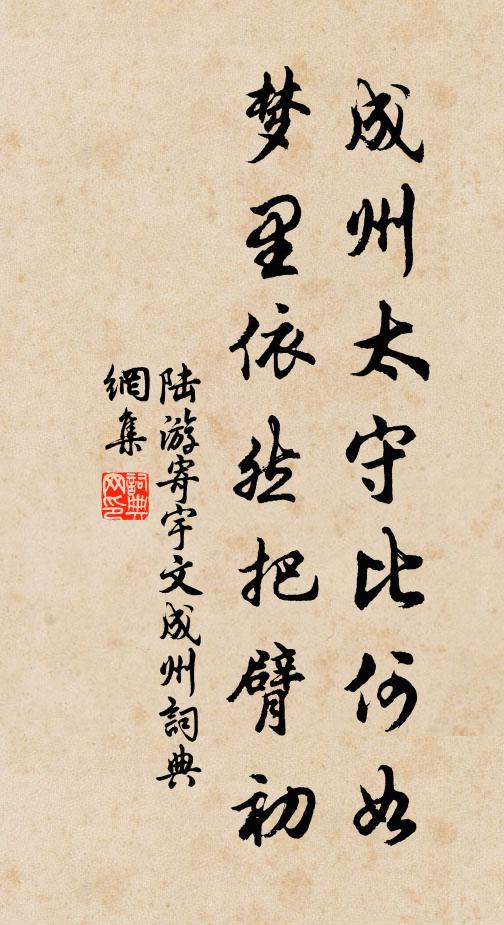 成州太守比何如
梦里依然把臂初
陆游寄宇文成州詞典
網集
詞典
网印